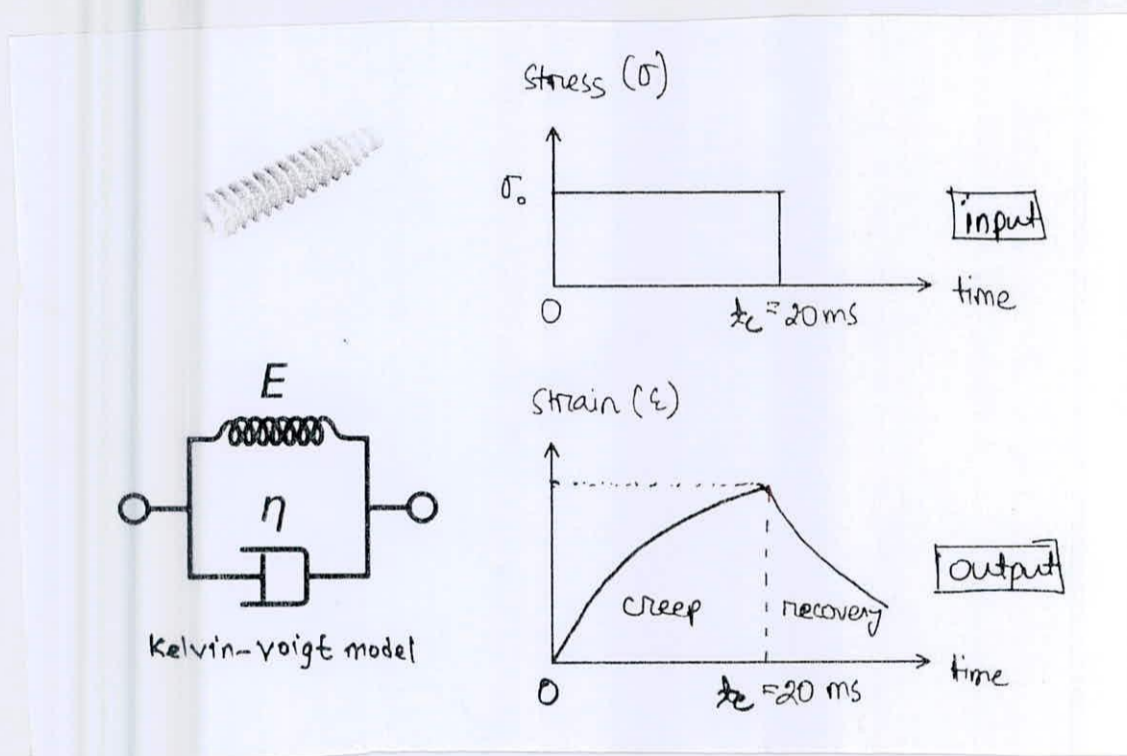 Stress (σ)
σ₀
input
0
t_c = 20 ms
time
E
η
Kelvin-Voigt model
Strain (ε)
creep
recovery
output
0
t_c = 20 ms
time